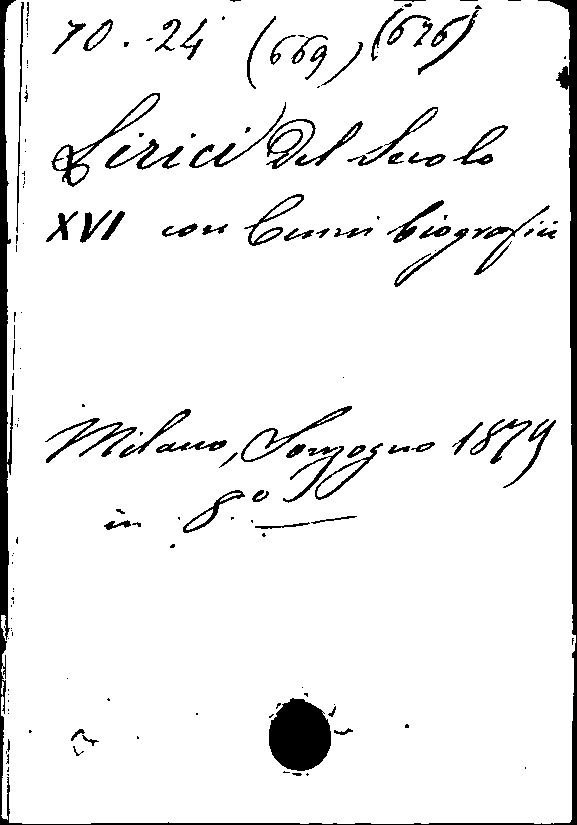 70.-24 (669) (676)
Lirici del Secolo
XVI con Cenni biografici
Milano, Sonzogno 1879
in 8.º